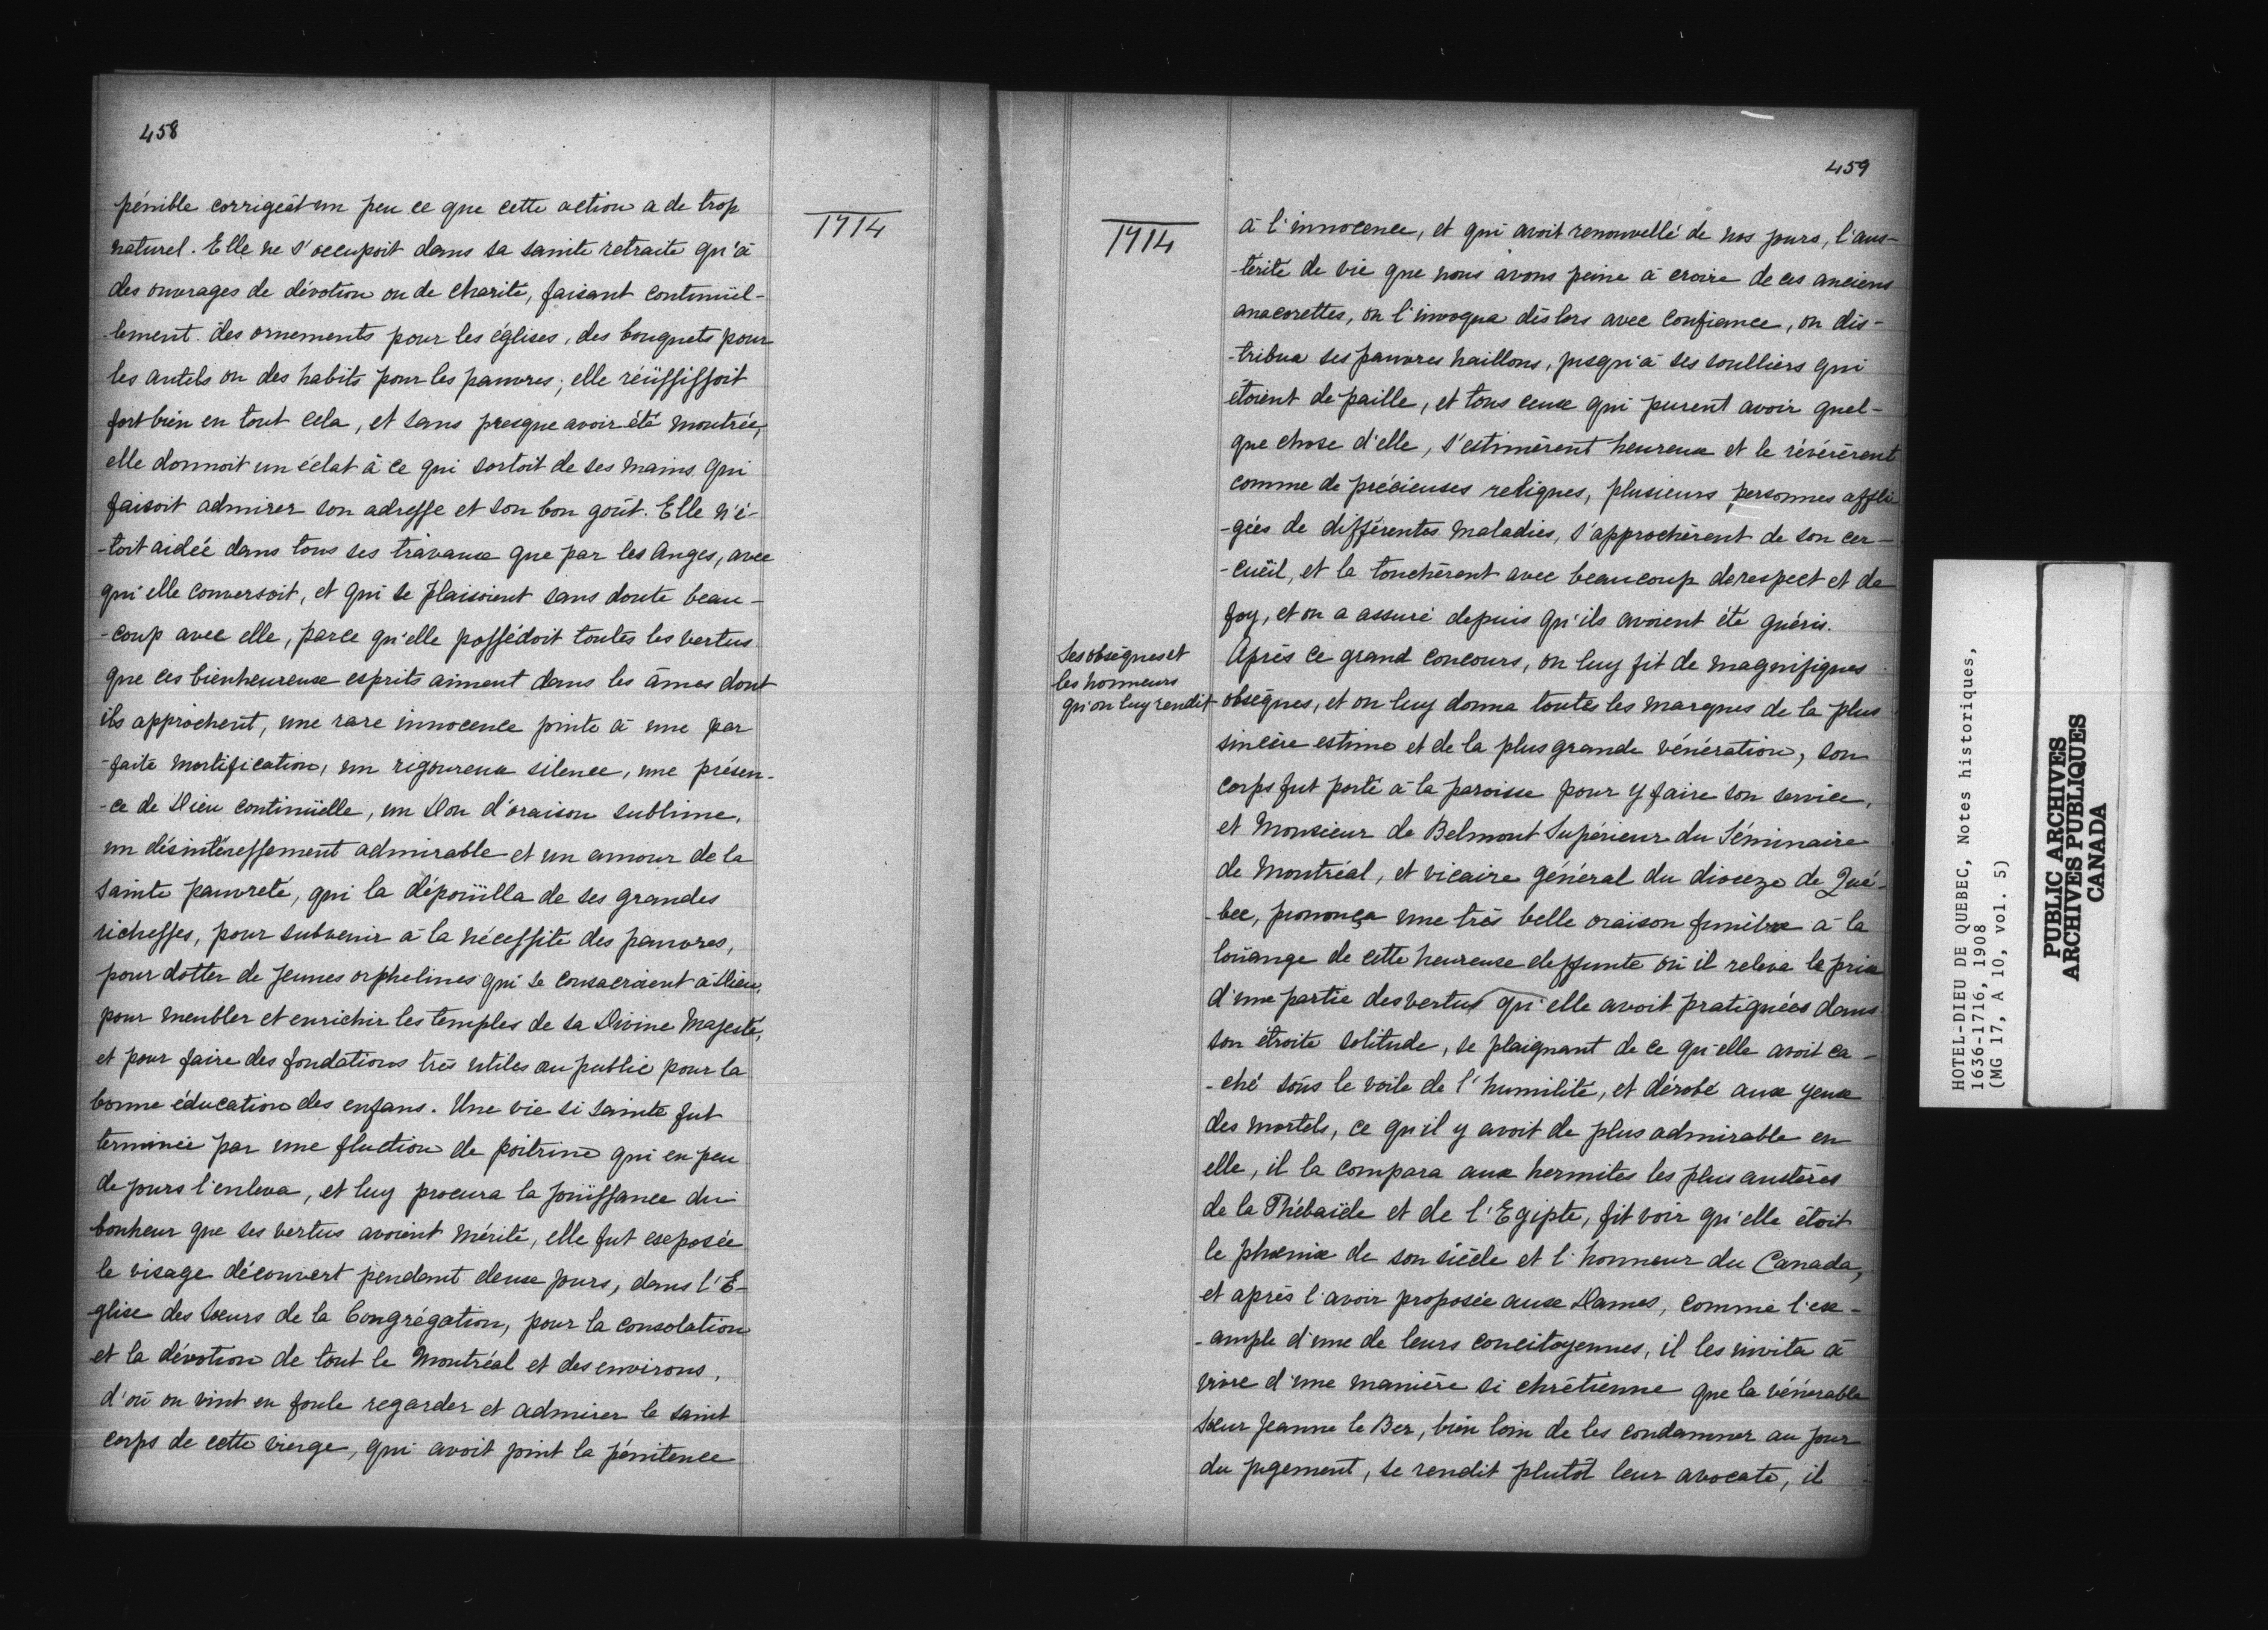 458
1714
pénible corrigeât un peu ce que cette action a de trop
naturel. Elle ne s'occupoit dans sa sainte retraite qu'à
des ouvrages de dévotion ou de charité, faisant continüel-
-lement des ornements pour les églises, des bouquets pour
les autels ou des habits pour les pauvres; elle réüssissoit
fort bien en tout cela, et sans presque avoir été montrée,
elle donnoit un éclat à ce qui sortoit de ses mains qui
faisoit admirer son adresse et son bon goût. Elle n'é-
-toit aidée dans tous ses travaux que par les Anges, avec
qui elle conversoit, et qui se plaisoient sans doute beau-
-coup avec elle, parce qu'elle possédoit toutes les vertus
que ces bienheureux esprits aiment dans les âmes dont
ils approchent, une rare innocence jointe à une par
-faite mortification, un rigoureux silence, une présen-
-ce de Dieu continüelle, un Don d'oraison sublime,
un désintéressement admirable et un amour de la
sainte pauvreté, qui la dépoüilla de ses grandes
richesses, pour subvenir à la nécessité des pauvres,
pour dotter de jeunes orphelines qui se consacroient à Dieu,
pour meubler et enrichir les temples de sa Divine Majesté,
et pour faire des fondations très utiles au public pour la
bonne éducation des enfans. Une vie si sainte fut
terminée par une fluction de poitrine qui en peu
de jours l'enleva, et luy procura la joüissance du
bonheur que ses vertus avoient mérité, elle fut exposée
le visage découvert pendant deux jours, dans l'E-
glise des Sœurs de la Congrégation, pour la consolation
et la dévotion de tout le Montréal et des environs,
d'où on vint en foule regarder et admirer le saint
corps de cette vierge, qui avoit joint la pénitence
459
1714
à l'innocence, et qui avoit renouvellé de nos jours, l'aus-
-térité de vie que nous avons peine à croire de ces anciens
anacorettes, on l'invoqua dès lors avec confiance, on dis-
-tribua ses pauvres haillons, jusqu'à ses soulliers qui
étoient de paille, et tous ceux qui purent avoir quel-
que chose d'elle, s'estimèrent heureux et le révérèrent
comme de précieuses reliques, plusieurs personnes affli
-gées de différentes maladies, s'approchèrent de son cer-
-cuëil, et le touchèrent avec beaucoup de respect et de
foy, et on a assuré depuis qu'ils avoient été guéris.
Ses obsèques et
les honneurs
qu'on luy rendit
Après ce grand concours, on luy fit de magnifiques
obsèques, et on luy donna toutes les marques de la plus
sincère estime et de la plus grande vénération, son
corps fut porté à la paroisse pour y faire son service,
et Monsieur de Belmont Supérieur du Séminaire
de Montréal, et vicaire général du diocèze de Qué-
-bec, prononça une très belle oraison funèbre à la
loüange de cette heureuse deffunte où il releva le prix
d'une partie des vertus qu'elle avoit pratiquées dans
son étroite solitude, se plaignant de ce qu'elle avoit ca-
-ché sous le voile de l'humilité, et dérobé aux yeux
des mortels, ce qu'il y avoit de plus admirable en
elle, il la compara aux hermites les plus austères
de la Thébaïde et de l'Egipte, fit voir qu'elle étoit
le phœnix de son siècle et l'honneur du Canada,
et après l'avoir proposée aux Dames, comme l'ex-
-ample d'une de leurs concitoyennes, il les invita à
vivre d'une manière si chrétienne que la vénérable
Sœur Jeanne le Ber, bien loin de les condamner au jour
du jugement, se rendit plutôt leur avocate, il
HOTEL-DIEU DE QUEBEC, Notes historiques,
1636-1716, 1908
(MG 17, A 10, vol. 5)
PUBLIC ARCHIVES
ARCHIVES PUBLIQUES
CANADA